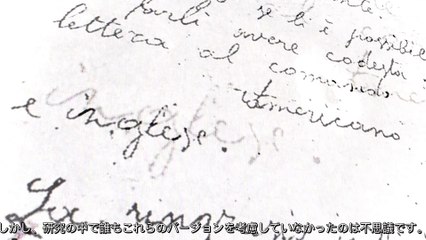 se li è possibile
farli avere codesta
lettera al comando
americano
e inglese.
しかし、研究の中で誰もこれらのバージョンを考慮していなかったのは不思議です。